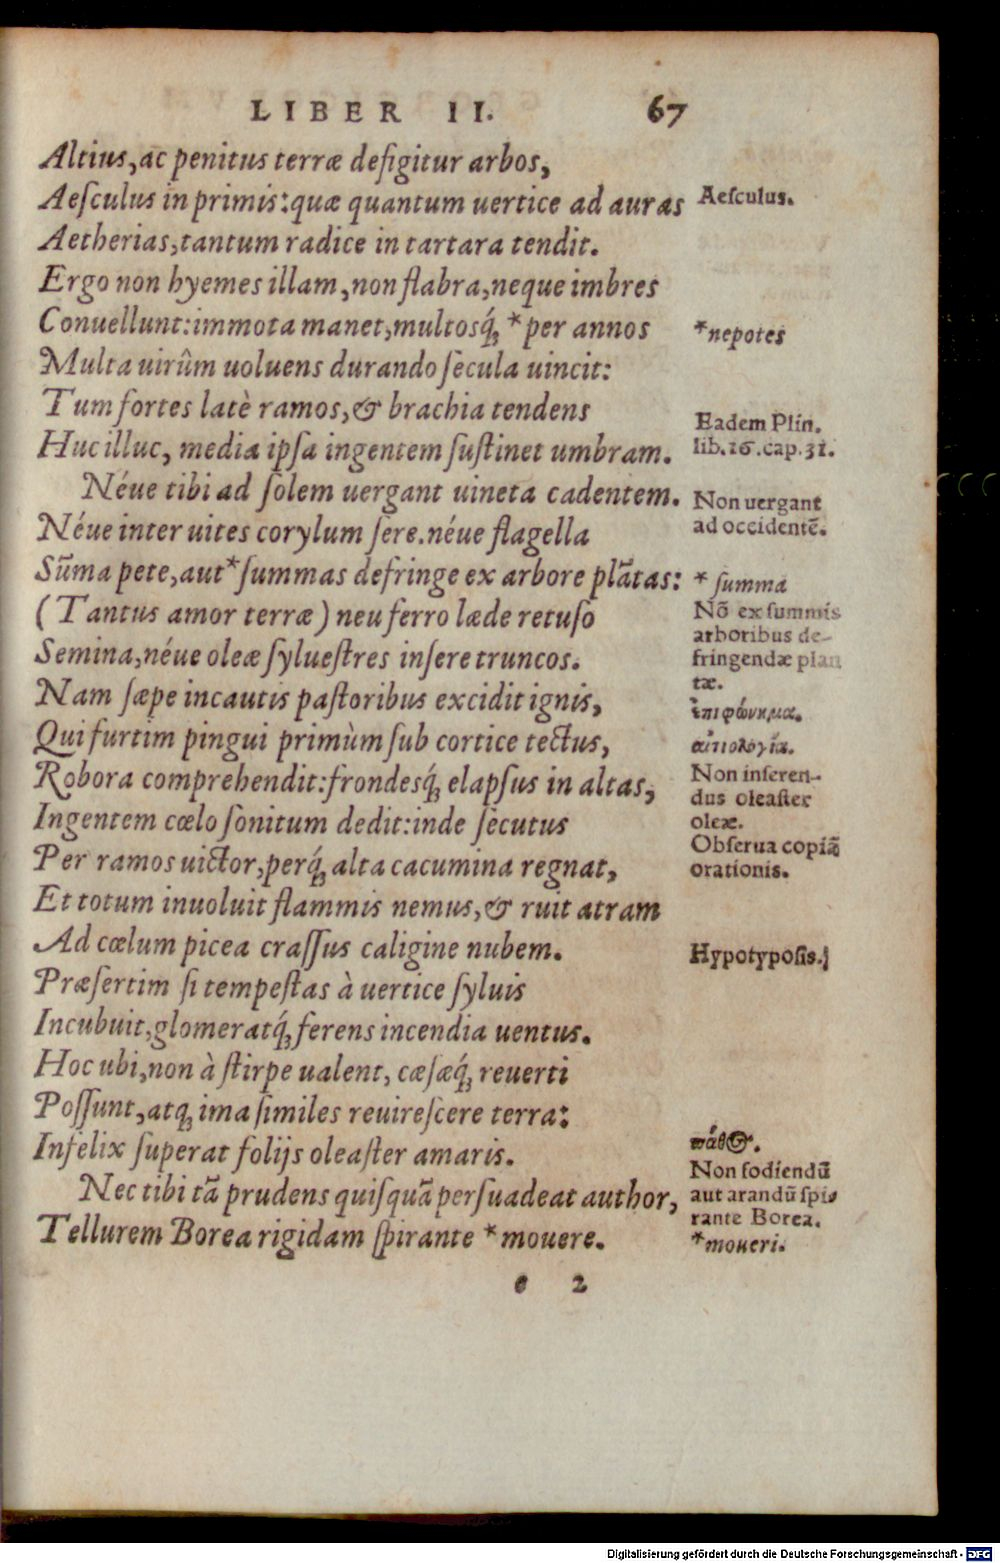 LIBER II. 67
Altius, ac penitus terræ defigitur arbos,
Aeſculus in primis: quæ quantum uertice ad auras
Aeſculus.
Aetherias, tantum radice in tartara tendit.
Ergo non hyemes illam, non flabra, neque imbres
Conuellunt: immota manet, multosq́; *per annos
*nepotes
Multa uirûm uoluens durando ſecula uincit:
Tum fortes latè ramos, & brachia tendens
Eadem Plin.
Huc illuc, media ipſa ingentem ſuſtinet umbram.
lib.16.cap.31.
Néue tibi ad ſolem uergant uineta cadentem.
Non uergant
Néue inter uites corylum ſere. néue flagella
ad occidentē.
Sūma pete, aut *ſummas defringe ex arbore plātas:
* ſumma
(Tantus amor terræ) neu ferro læde retuſo
Nō ex ſummis
arboribus de-
Semina, néue oleæ ſylueſtres inſere truncos.
fringendæ plan
tæ.
Nam ſæpe incautis paſtoribus excidit ignis,
ἐπιφώνημα.
Qui furtim pingui primùm ſub cortice tectus,
αἰτιολογία.
Robora comprehendit: frondesq́; elapſus in altas,
Non inſeren-
dus oleaſter
Ingentem cœlo ſonitum dedit: inde ſecutus
oleæ.
Obſerua copiā
Per ramos uictor, perq́; alta cacumina regnat,
orationis.
Et totum inuoluit flammis nemus, & ruit atram
Ad cœlum picea craſſus caligine nubem.
Hypotypoſis.
Præſertim ſi tempeſtas à uertice ſyluis
Incubuit, glomeratq́; ferens incendia uentus.
Hoc ubi, non à ſtirpe ualent, cæſæq́; reuerti
Poſſunt, atq; ima ſimiles reuireſcere terra:
Infelix ſuperat folijs oleaſter amaris.
πάθος.
Non fodiendū
Nec tibi tā prudens quiſquā perſuadeat author,
aut arandū ſpi-
rante Borea.
Tellurem Borea rigidam ſpirante *mouere.
*moueri.
e 2
Digitalisierung gefördert durch die Deutsche Forschungsgemeinschaft - DFG